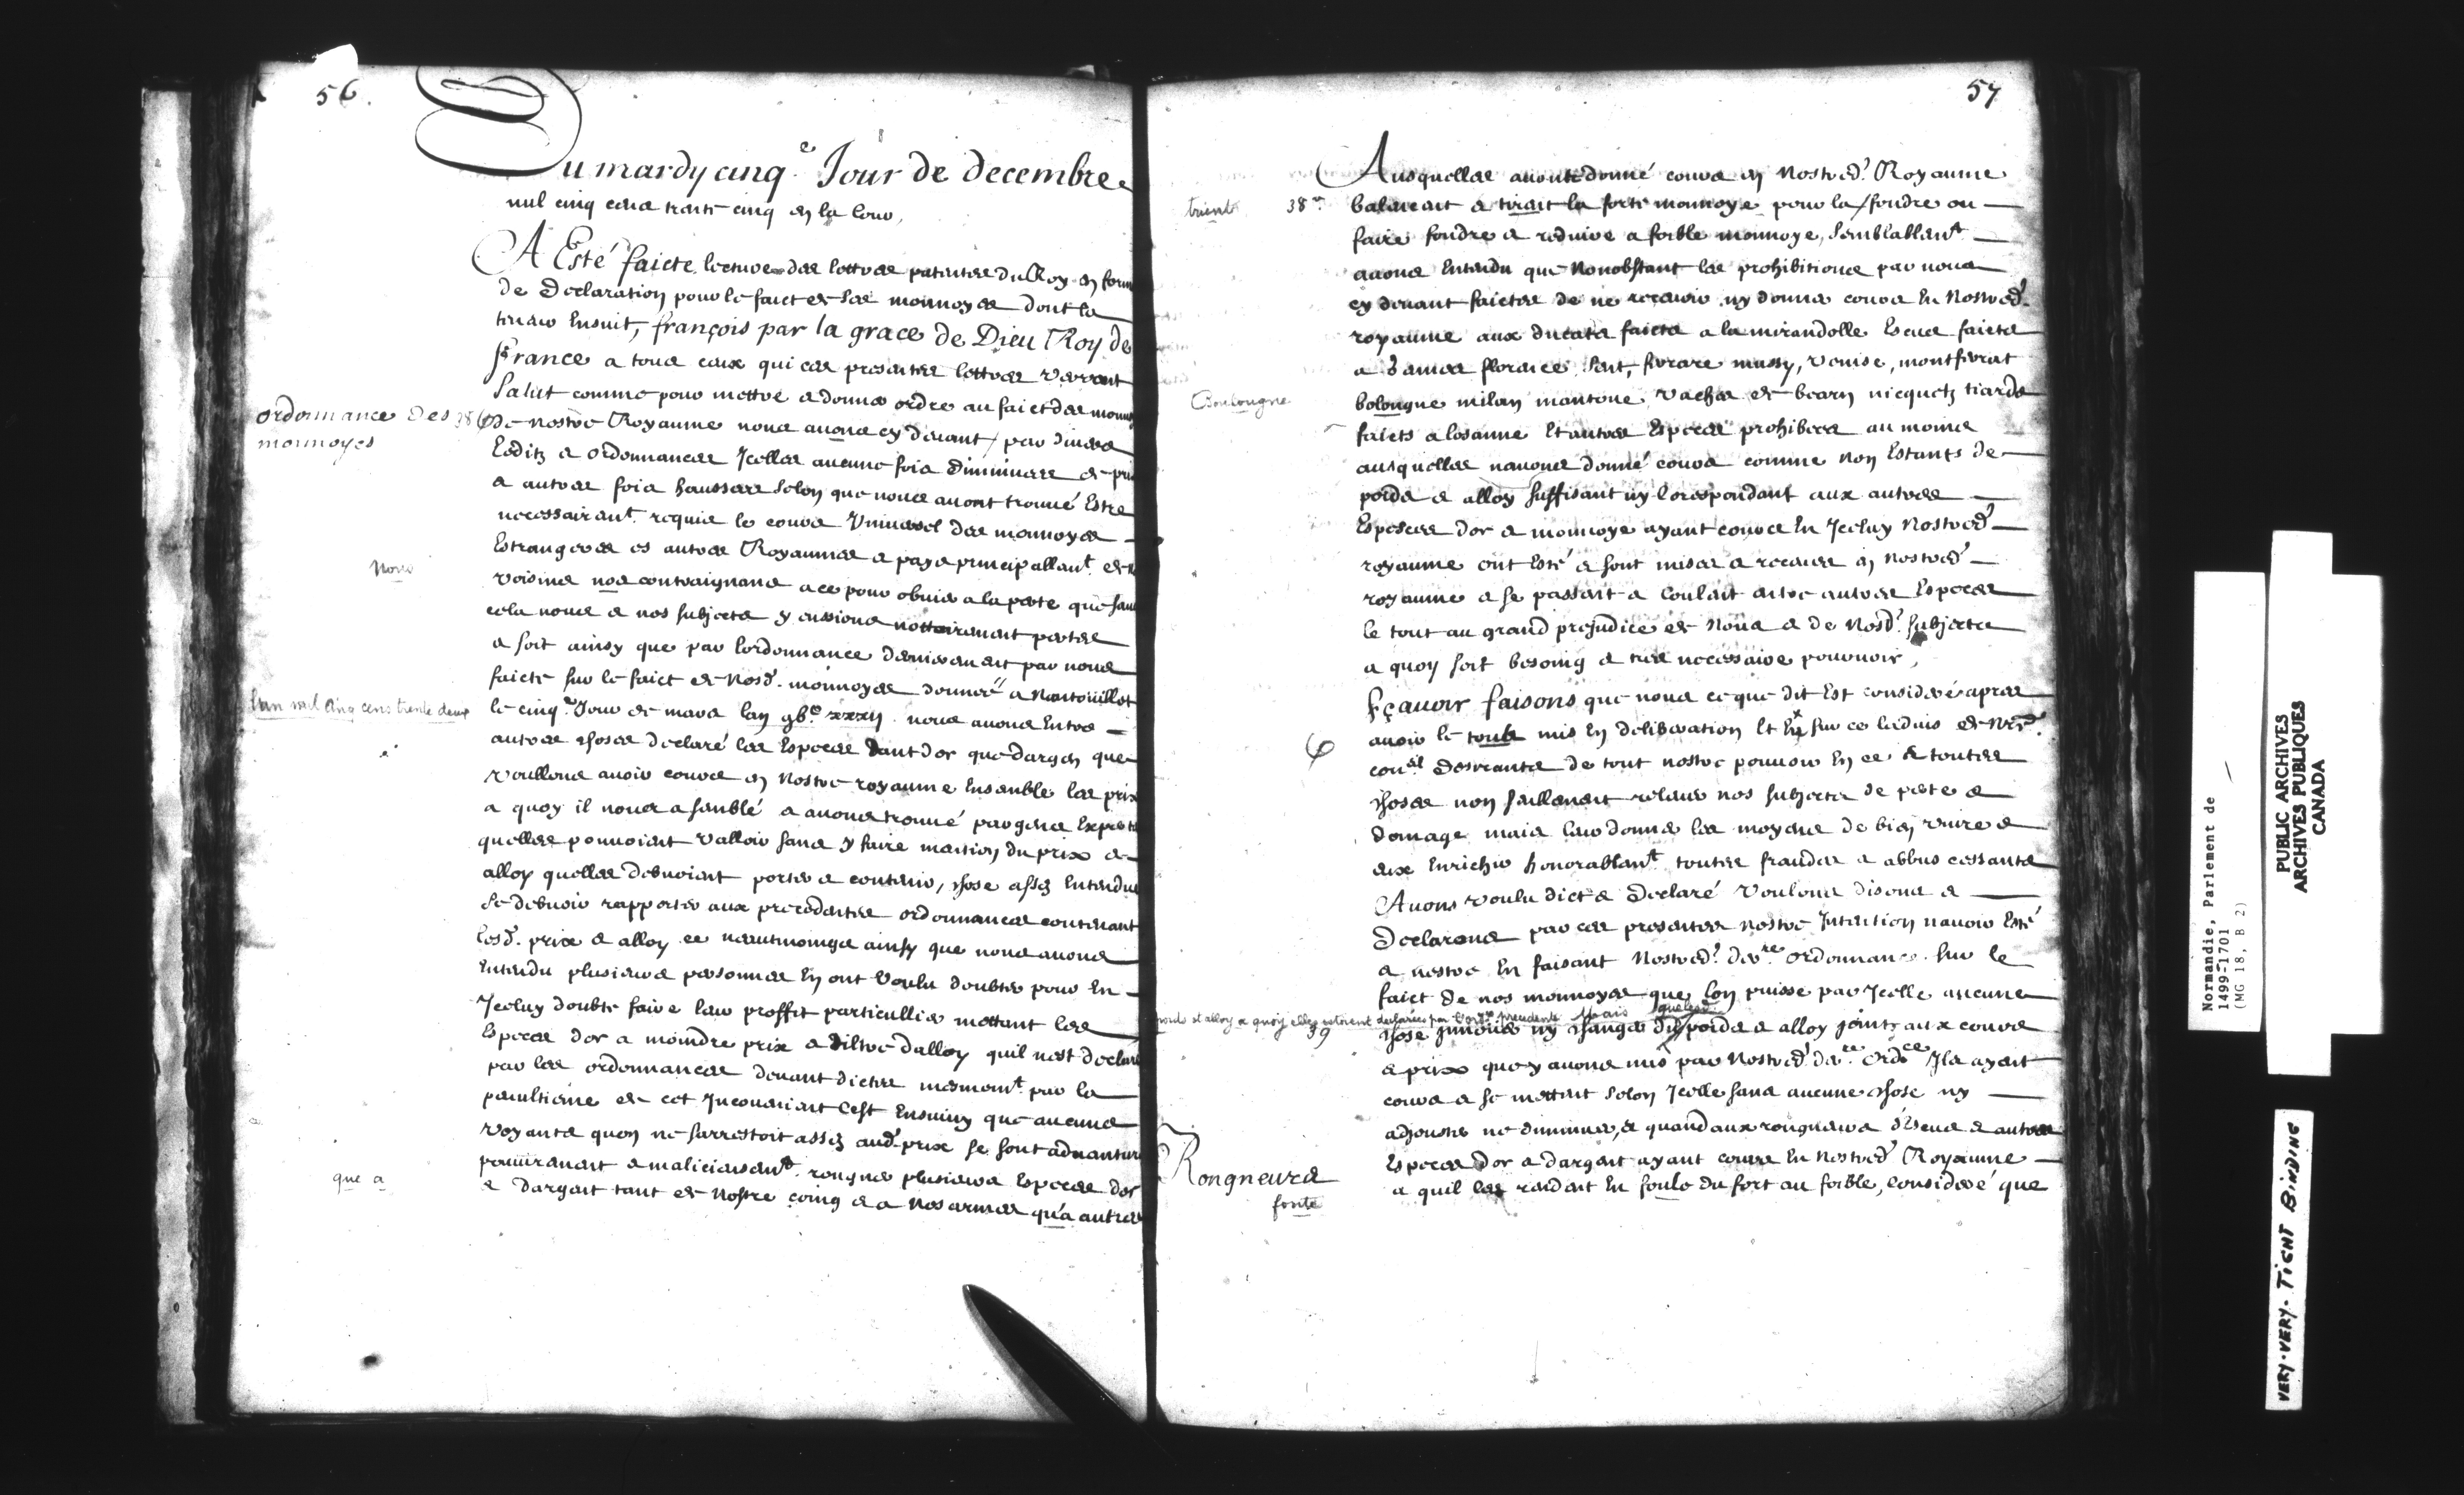 56.
Du mardy cinq.e Jour de decembre
mil cinq cens trente cinq en la cour,
A Esté faicte lecture des lettres patentes du Roy en form
de Declaration pour le faict de ses monnoyes dont la
teneur Ensuit, françois par la grace de Dieu Roy de
france a tous ceux qui ces presentes lettres verront
Salut comme pour mettre & donner ordre au faict des monn
ordonnance des 38
monnoyes
de nostre Royaume nous auons cy deuant par diuers
Edits & ordonnances Jcelles aucune fois diminuees de prix
& autres fois haussees selon que nous auont trouué Estre
necessairem.t requis le cours Vniuersel des monnoyes
Estrangeres es autres Royaumes & pays principallem.t de
nous
voisins nos contraignans a ce pour obuier a la perte que san
cela nous & nos subjects y eussions nottoirement portee
& soit ainsy que par lordonnance dernierement par nous
faicte sur le faict de nosd. monnoyes donnée a Nantouillet
lan mil cinq cens trente deux
le cinq.e Jour de mars lan gb.c xxxij nous auons Entre
autres choses declaré les Especes tant dor que dargen que
voullons auoir cours en nostre royaume Ensemble les prix
a quoy il nous a semblé & auons trouué par gens Experts
quelles pouuoient valloir sans y faire mention du prix &
alloy quelles debuoient porter & contenir, chose assez Entendue
se debuoir rapporter aux precedentes ordonnances contenant
lesd. prix & alloy ce neantmoings ainsy que nous auons
Entendu plusieurs personnes En ont voulu doubter pour En
Jceluy doubte faire leur proffit particullier mettant les
Especes dor a moindre prix & diltre dalloy quil nest declaré
par les ordonnances deuant dictes mesmem.t par la
de cet Jnconuenient Cest Ensuiuy que aucuns
voyants quon ne sarrestoit assez aud. prix se sont aduantur
& malicieusem.t rongner plusieurs Especes dor
que a
& dargent tant de Nostre coing & a Nos armes qu'a autres
57
Ausquelles auont donné cours en Nostred. Royaume
trient 38
balancent & tirant la forte monnoye pour la fondre ou
faire fondre & reduire a foible monnoye, Semblablem.t
auons Entendu que Nonobstant les prohibitions par nous
cy deuant faictes de ne receuoir ny donner cours En Nostred.
royaume aux ducats faicts a la mirandolle Escus faicts
florence, venise, montferrat
Boulougne
bolongne milan mantoue, vaches de bearn nicquets liards
faicts a losanne Et autres Especes prohibees au moins
ausquelles nauons donné cours comme non Estants de
poids & alloy suffisant ny Corespondant aux autres
Especes dor & monnoye ayant cours En Jceluy Nostred.
royaume ont Esté & sont mises & receues en Nostred.
royaume & se passent & coulent auec autres Especes
le tout au grand prejudice de Nous & de Nosd. subjects
a quoy soit besoing & tres necessaire pouruoir,
sçauoir faisons que nous ce que dit Est consideré apres
auoir le tout mis En deliberation Et Eu sur ce laduis de nred.
con.el desirants de tout nostre pouuoir En ce & toutes
choses non seullement releuer nos subjects de perte &
domage mais leur donner les moyens de bien viure &
eux Enrichir honorablem.t toutes fraudes & abbus cessants
Auons voulu dict & declaré voulons disons &
Declarons par ces presentes nostre Jntention nauoir Esté
& nestre En faisant Nostred. der.re ordonnance sur le
faict de nos monnoyes que lon puisse par Jcelle aucune
poids et alloy a quoy elles estoient declarées par l'ord.ce precedente mais quelesd.
39
chose Jnnouer ny changer des poids & alloy joints aux cours
& prix que y auons mis par Nostred. der.re ord.ce Jls ayent
cours & se mettent selon Jcelle sans aucune chose ny
adjouster ne diminuer, & quand aux rongneurs d'Escus & autres
Rongneurs
Especes dor & dargent ayant cours En Nostred. Royaume
fonte
a quil les rendent En foule du fort au foible, consideré que
Normandie, Parlement de
1499-1701
(MG 18, B 2)
PUBLIC ARCHIVES
ARCHIVES PUBLIQUES
CANADA
VERY-VERY-TIGHT BINDING